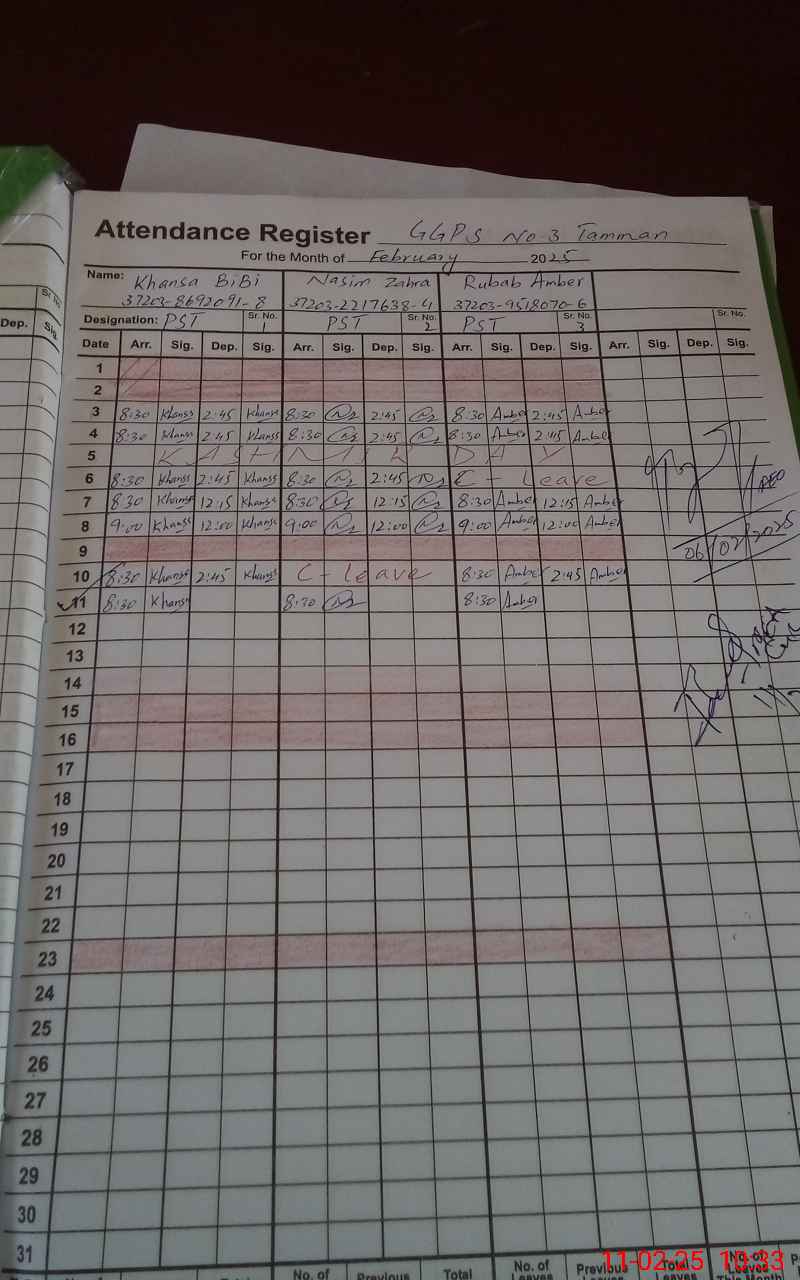 Attendance Register GGPS No 3 Tamman
For the Month of February 2025
Name: Khansa BiBi Nasim Zahra Rubab Amber
37203-8692091-8 37203-2217638-4 37203-9518070-6
Designation: PST Sr. No. 1 PST Sr. No. 2 PST Sr. No. 3 Sr. No.
Date Arr. Sig. Dep. Sig. Arr. Sig. Dep. Sig. Arr. Sig. Dep. Sig. Arr. Sig. Dep. Sig.
1
2
3 8:30 Khansa 2:45 Khansa 8:30 2:45 8:30 Amber 2:45 Amber
4 8:30 Khansa 2:45 Khansa 8:30 2:45 8:30 Amber 2:45 Amber
5 KASHMIR DAY
6 8:30 Khansa 2:45 Khansa 8:30 2:45 C - Leave
7 8:30 Khansa 12:15 Khansa 8:30 12:15 8:30 Amber 12:15 Amber
8 9:00 Khansa 12:00 Khansa 9:00 12:00 9:00 Amber 12:00 Amber
06/02/2025
9
10 8:30 Khansa 2:45 Khansa C - Leave 8:30 Amber 2:45 Amber
11 8:30 Khansa 8:30 8:30 Amber
12
13
14
15
16
17
18
19
20
21
22
23
24
25
26
27
28
29
30
31
No. of Leaves Previous Total No. of Leaves Previous Leaves Total Leaves No. of Leaves
11-02-25 10:33
Dep. Sig.
Sr. No.